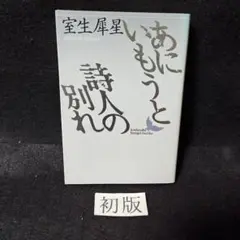 室生犀星
あにいもうと
詩人の別れ
初版